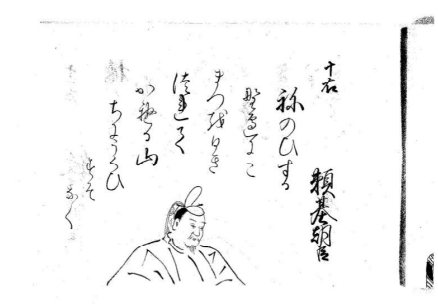 十右
頼基朝臣
祢のひする
野邊尓こ
まつ越ひき
徒連天
かへる山
ちにうくひ
す曽
なく